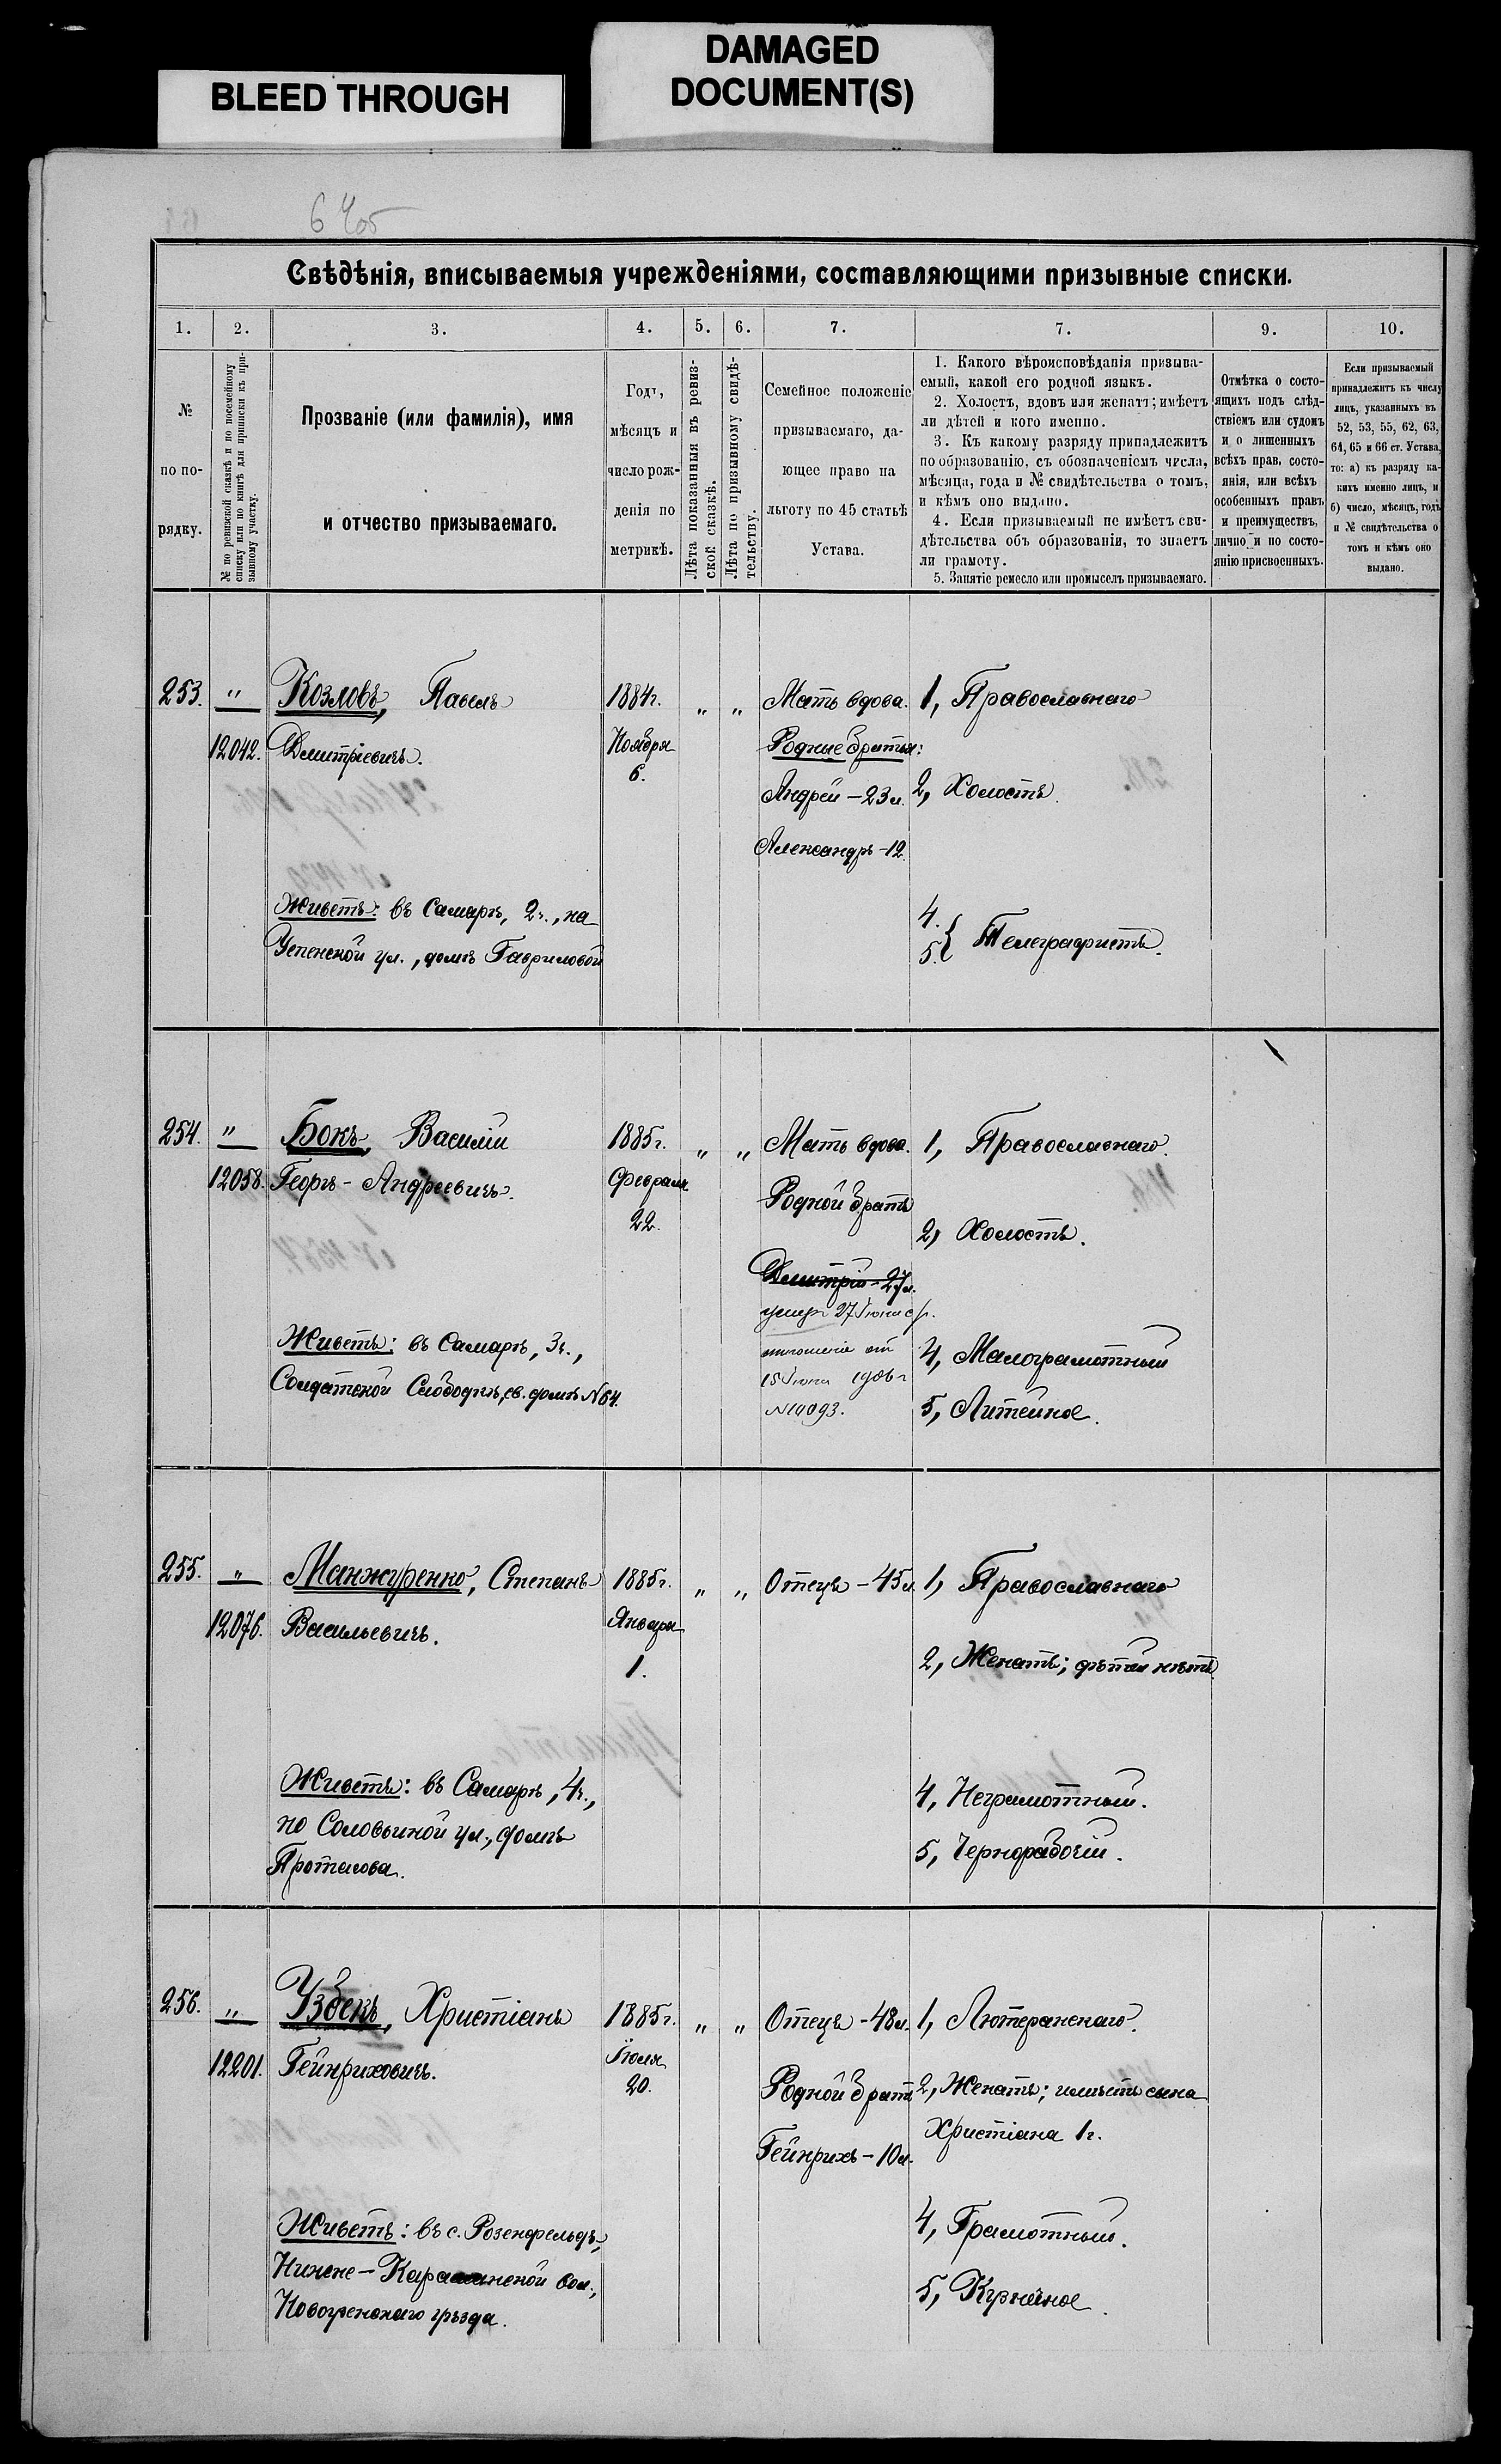 BLEED THROUGH
DAMAGED
DOCUMENT(S)
Свѣдѣнія, вписываемыя учрежденіями, составляющими призывные списки.
1. 2. 3. 4. 5. 6. 7. 7. 9. 10.
№
по по-
рядку.
№ по ревизской сказкѣ и по посемейному
списку или по книгѣ для приписки къ при-
зывному участку.
Прозваніе (или фамилія), имя
и отчество призываемаго.
Годъ,
мѣсяцъ и
число рож-
денія по
метрикѣ.
Лѣта показанныя въ ревиз-
ской сказкѣ.
Лѣта по призывному свидѣ-
тельству.
Семейное положеніе
призываемаго, да-
ющее право на
льготу по 45 статьѣ
Устава.
1. Какого вѣроисповѣданія призыва-
емый, какой его родной языкъ.
2. Холостъ, вдовъ или женатъ; имѣетъ
ли дѣтей и кого именно.
3. Къ какому разряду принадлежитъ
по образованію, съ обозначеніемъ числа,
мѣсяца, года и № свидѣтельства о томъ,
и кѣмъ оно выдано.
4. Если призываемый не имѣетъ сви-
дѣтельства объ образованіи, то знаетъ
ли грамоту.
5. Занятіе ремесло или промыселъ призываемаго.
Отмѣтка о состо-
ящихъ подъ слѣд-
ствіемъ или судомъ
и о лишенныхъ
всѣхъ прав, состо-
янія, или всѣхъ
особенныхъ правъ
и преимуществъ,
лично и по состо-
янію присвоенныхъ.
Если призываемый
принадлежитъ къ числу
лицъ, указанныхъ въ
52, 53, 55, 62, 63,
64, 65 и 66 ст. Устава,
то: а) къ разряду ка-
кихъ именно лицъ, и
б) число, мѣсяцъ, годъ
и № свидѣтельства о
томъ и кѣмъ оно
выдано.
253. " Козловъ, Павелъ 1884г. " " Мать вдова. 1, Православнаго
12042. Дмитріевичъ. Ноября Родные братья:
6.
Андрей - 23 л. 2, Холостъ.
Александръ - 12
Живетъ: въ Самарѣ, 2ч., на 4.
Успенской ул., домъ Гавриловой 5. } Телеграфистъ.
254. " Бокъ, Василій 1885г. " " Мать вдова. 1, Православнаго.
12058. Георгъ - Андреевичъ. Февраля Родной братъ
22. 2, Холостъ.
Дмитрій - 27л.
умеръ 27 Іюня с/г.
Живетъ: въ Самарѣ, 3ч., отношеніе от 4, Малограмотный
Солдатской Слободкѣ, св. домъ N64. 15 Іюня 1906 г
N14093. 5, Литейное.
255. " Манжуренко, Степанъ 1885г. " " Отецъ - 45л. 1, Православнаго
12076. Васильевичъ. Января
1. 2, Женатъ; дѣтей нѣтъ.
Живетъ: въ Самарѣ, 4ч., 4, Неграмотный.
по Соловьиной ул., домъ
Протасова. 5, Чернорабочій.
256. " Узбекъ, Христіанъ 1885г. " " Отецъ - 48л. 1, Лютеранскаго.
12201. Гейнриховичъ. Іюля
20. Родной братъ 2, Женатъ; имѣетъ сына
Христіана 1г.
Гейнрихъ - 10л.
Живетъ: въ с. Розенфельдъ, 4, Грамотный.
Нижне - вол.,
Новоузенскаго уѣзда. 5, Кузнечное.